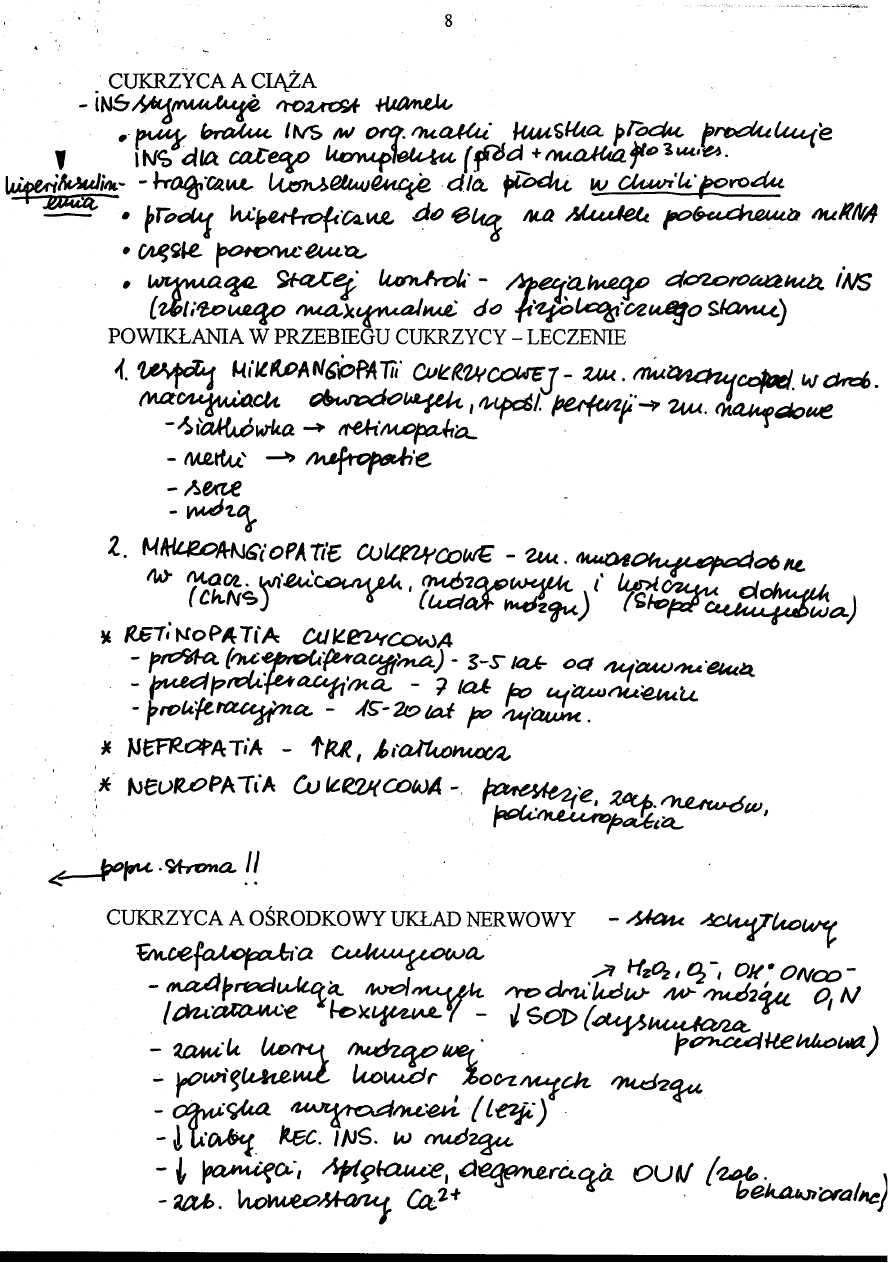 8
CUKRZYCA A CIĄŻA
- INS stymuluje rozrost tkanek
• przy braku INS w org. matki trzustka płodu produkuje
INS dla całego kompleksu (płód + matka) do 3 mies.
hiperinsulin-
emia
- tragiczne konsekwencje dla płodu w chwili porodu
• płody hipertroficzne do 8kg na skutek pobudzenia mRNA
• częste poronienia
• wymaga stałej kontroli - specjalnego dozorowania INS
(zbliżonego maxymalnie do fizjologicznego stanu)
POWIKŁANIA W PRZEBIEGU CUKRZYCY – LECZENIE
1. zespoły MIKROANGIOPATII CUKRZYCOWEJ - zm. miażdżycopod. w drob.
naczyniach obwodowych, upośl. perfuzji → zm. narządowe
- siatkówka → retinopatia
- nerki → nefropatie
- serce
- mózg
2. MAKROANGIOPATIE CUKRZYCOWE - zm. miażdżycopodobne
w nacz. wieńcowych, mózgowych i kończyn dolnych
(ChNS) (udar mózgu) (stopa cukrzycowa)
* RETINOPATIA CUKRZYCOWA
- prosta (nieproliferacyjna) - 3-5 lat od ujawnienia
- przedproliferacyjna - 7 lat po ujawnieniu
- proliferacyjna - 15-20 lat po ujawn.
* NEFROPATIA - ↑RR, białkomocz
* NEUROPATIA CUKRZYCOWA - parestezje, zap. nerwów,
polineuropatia
← poprz. strona !!
CUKRZYCA A OŚRODKOWY UKŁAD NERWOWY - stan schyłkowy
Encefalopatia cukrzycowa
→ H2O2, O2⁻, OH• ONOO⁻
- nadprodukcja wolnych rodników w mózgu O, N
/działanie toksyczne/ - ↓SOD (dysmutaza
ponadtlenkowa)
- zanik kory mózgowej
- powiększenie komór bocznych mózgu
- ogniska zwyrodnień (lezji)
- ↓ liczby REC. INS. w mózgu
- ↓ pamięci, splątanie, degeneracja OUN (zab.
behawioralne)
- zab. homeostazy Ca²⁺